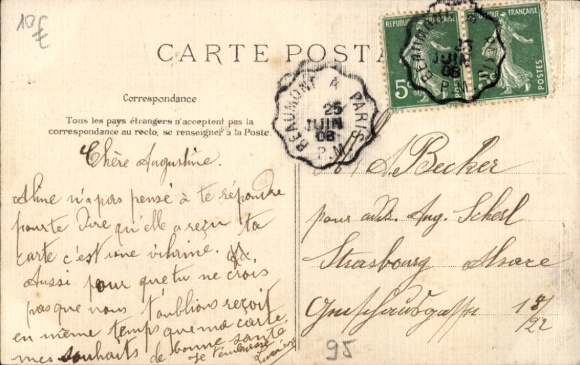 10f
CARTE POSTA
RÉPUBLIQUE FRANÇAISE
5c
POSTES
BEAUMONT A PARIS
25
JUIN
08
P.M
Correspondance
Tous les pays étrangers n'acceptent pas la
correspondance au recto, se renseigner à la Poste.
Chère Augustine.
n'a pas pensé à te répondre
pour te dire qu'elle a reçu ta
carte c'est une vitrine.
Aussi pour que tu ne crois
pas que nous t'oublions reçoit
en même temps que ma carte
mes souhaits de bonne santé
Je t'embrasse
A. Becker
pour adr. Aug. Scherl
Strasbourg Alsace
18/22
95